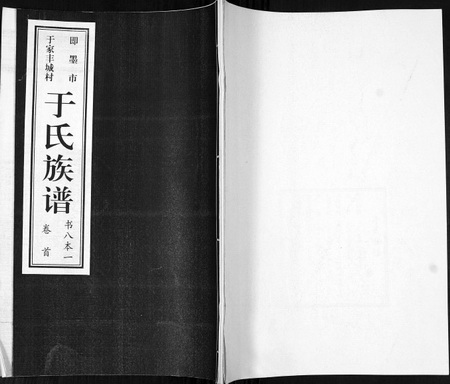 即墨市
于家丰城村
于氏族谱
书八本一
卷首